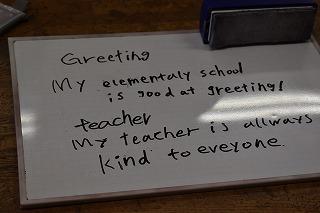 Greeting
My elementaly school
is good at greeting!
teacher
My teacher is allways
kind to eveyone.